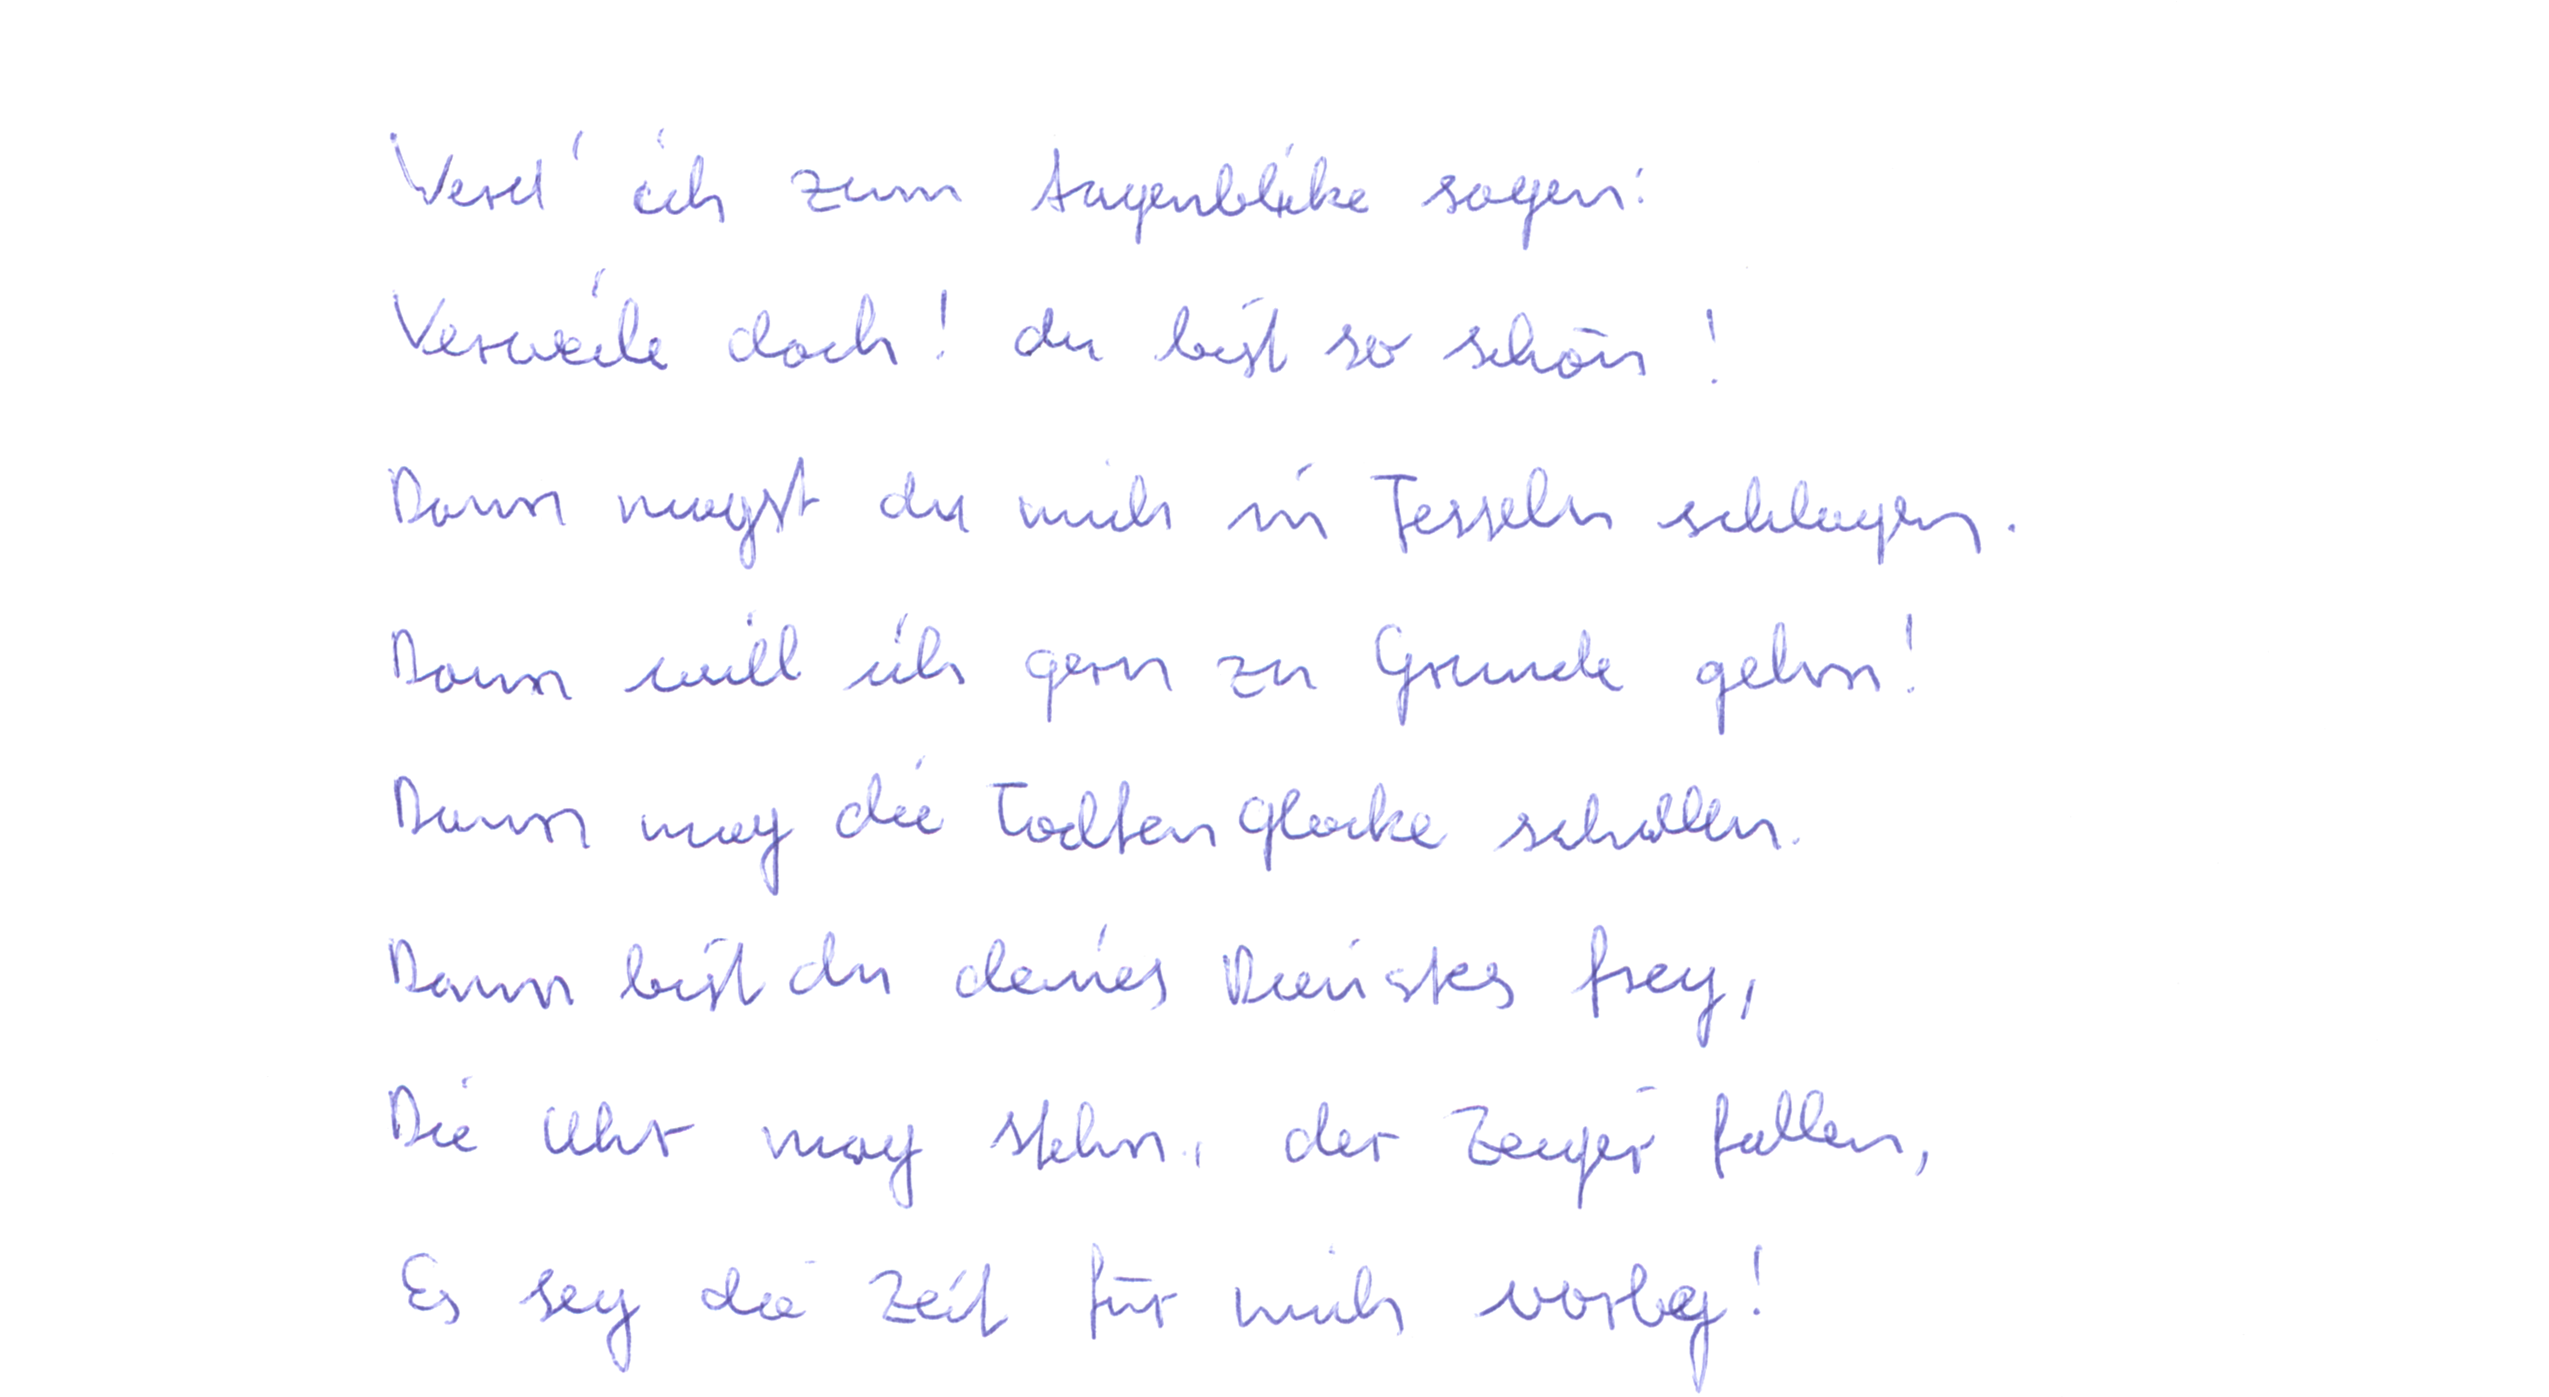 Werd' ich zum Augenblicke sagen:
Verweile doch! du bist so schön!
Dann magst du mich in Fesseln schlagen.
Dann will ich gern zu Grunde gehn!
Dann mag die Todten Glocke schallen.
Dann bist du deines Dienstes frey,
Die Uhr mag stehn, der Zeiger fallen,
Es sey die Zeit für mich vorbey!